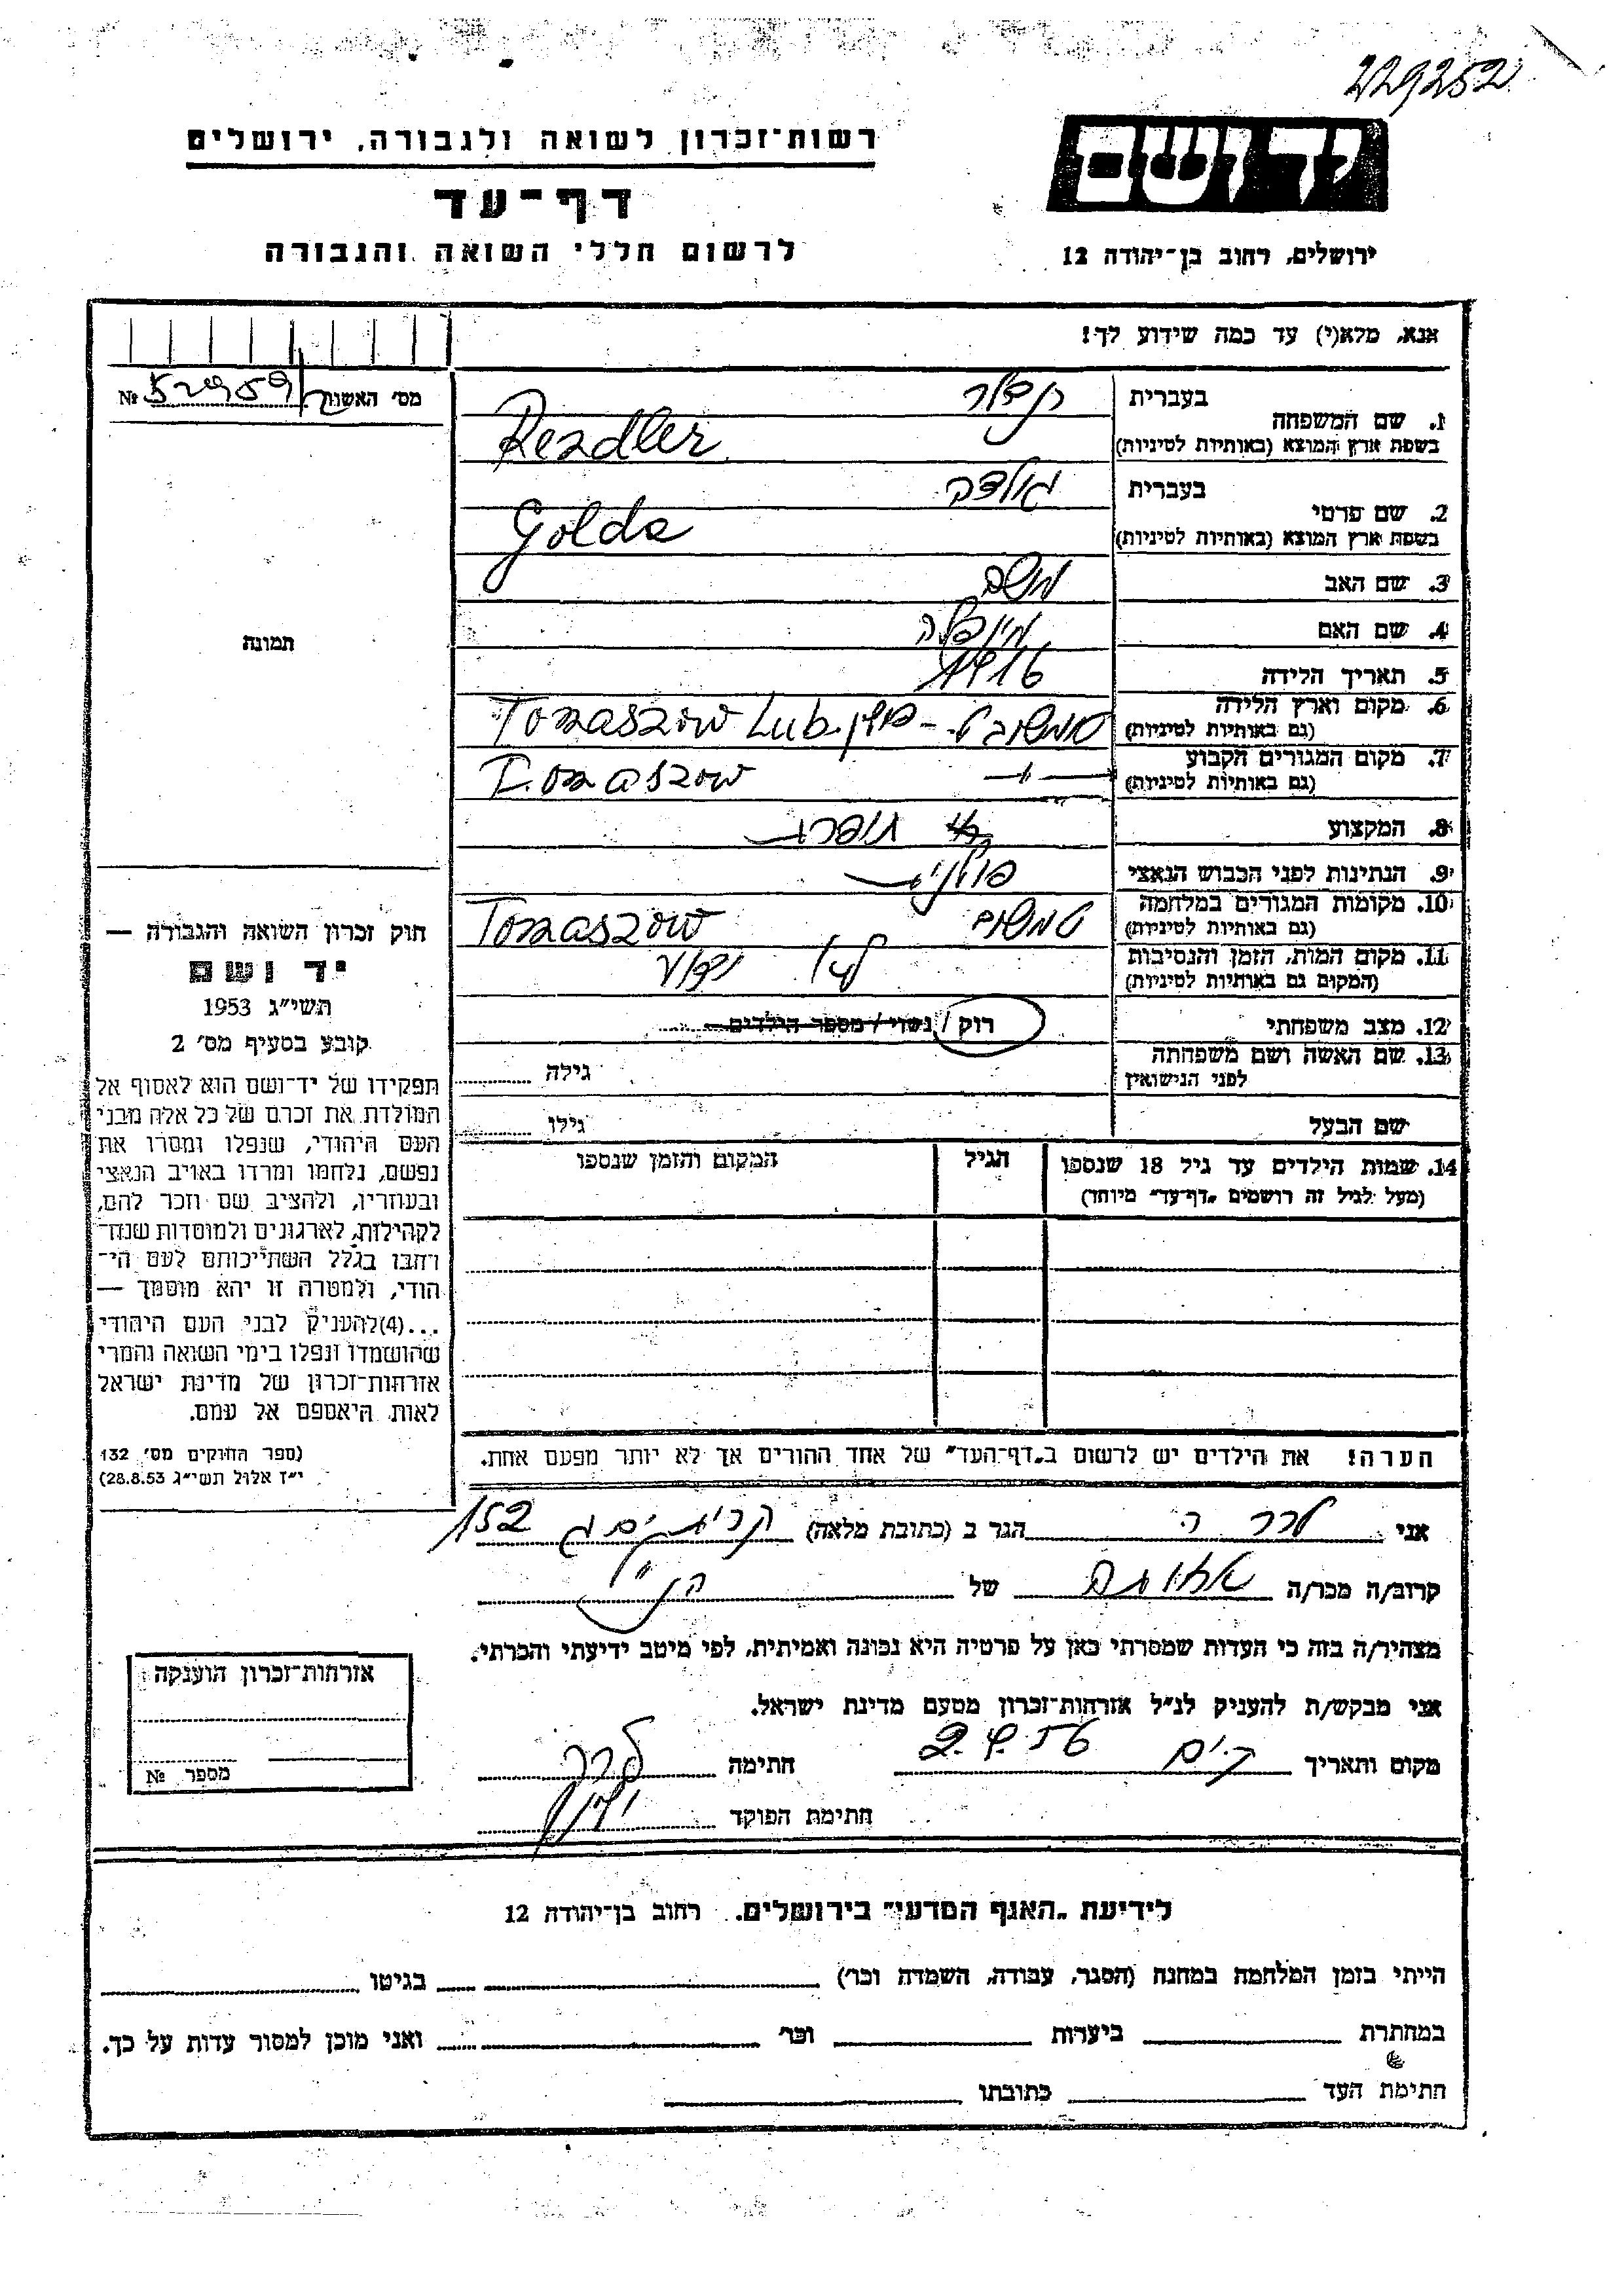 229252
יד ושם
רשות־זכרון לשואה ולגבורה, ירושלים
דף־עד
לרשום חללי השואה והגבורה
ירושלים, רחוב בן־יהודה 12
אנא, מלא(י) עד כמה שידוע לך!
מס׳ האשות
№ 52959
1. שם המשפחה
בעברית
רנדלר
בשפת ארץ המוצא (באותיות לטיניות)
Rendler
2. שם פרטי
בעברית
גולדה
בשפת ארץ המוצא (באותיות לטיניות)
Golda
3. שם האב
משה
4. שם האם
5. תאריך הלידה
1916
6. מקום וארץ הלידה
(גם באותיות לטיניות)
Tomaszów Lub. פולין
7. מקום המגורים הקבוע
(גם באותיות לטיניות)
Tomaszów
8. המקצוע
תופרת
9. הנתינות לפני הכבוש הנאצי
פולנית
10. מקומות המגורים במלחמה
(גם באותיות לטיניות)
טמשוב Tomaszów
11. מקום המות, הזמן והנסיבות
(המקום גם באותיות לטיניות)
לא ידוע
12. מצב משפחתי
רוק / נשוי / מספר הילדים
13. שם האשה ושם משפחתה
לפני הנישואין
גילה
שם הבעל
גילו
14. שמות הילדים עד גיל 18 שנספו
(מעל לגיל זה רושמים „דף־עד״ מיוחד)
הגיל
המקום והזמן שנספו
הערה! את הילדים יש לרשום ב„דף־העד״ של אחד ההורים אך לא יותר מפעם אחת.
תמונה
חוק זכרון השואה והגבורה —
יד ושם
תשי״ג 1953
קובע בסעיף מס׳ 2
תפקידו של יד־ושם הוא לאסוף אל
המולדת את זכרם של כל אלה מבני
העם היהודי, שנפלו ומסרו את
נפשם, נלחמו ומרדו באויב הנאצי
ובעוזריו, ולהציב שם וזכר להם,
לקהילות, לארגונים ולמוסדות שנח־
רבו בגלל השתייכותם לעם הי־
הודי, ולמטרה זו יהא מוסמך —
...(4) להעניק לבני העם היהודי
שהושמדו ונפלו בימי השואה והמרי
אזרחות־זכרון של מדינת ישראל
לאות היאספם אל עמם.
(ספר החוקים מס׳ 132
י״ז אלול תשי״ג 28.8.53)
אני לרר ה הגר ב (כתובת מלאה) קרית ים ג 152
קרוב/ה מכר/ה של הנ״ל
מצהיר/ה בזה כי העדות שמסרתי כאן על פרטיה היא נכונה ואמיתית, לפי מיטב ידיעתי והכרתי.
אני מבקש/ת להעניק לנ״ל אזרחות־זכרון מטעם מדינת ישראל.
מקום ותאריך ק. ים 2.4.56 חתימה לרר
חתימת הפוקד
אזרחות־זכרון הוענקה
מספר №
לידיעת „האגף המדעי״ בירושלים. רחוב בן־יהודה 12
הייתי בזמן המלחמה במחנה (הסגר, עבודה, השמדה וכו׳) בגיטו
במחתרת ביערות וכו׳ ואני מוכן למסור עדות על כך.
חתימת העד כתובתו